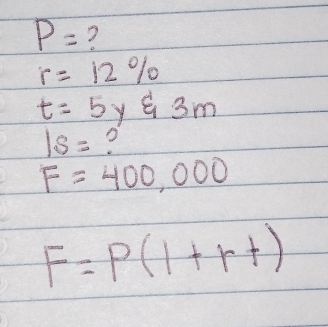 P = ?
r = 12 %
t = 5 y & 3 m
Is = ?
F = 400,000
F = P(1 + rt)